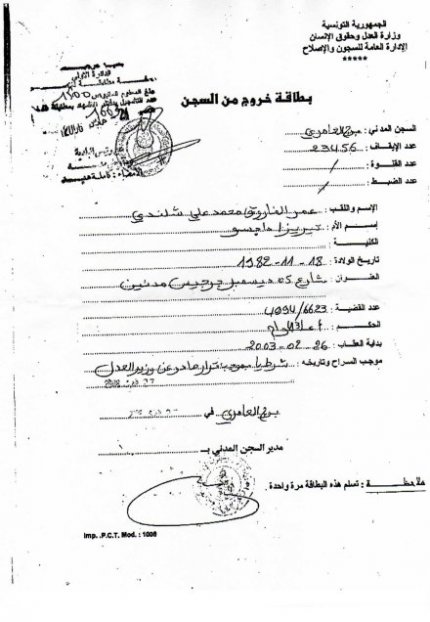 الجمهورية التونسية
وزارة العدل وحقوق الإنسان
الإدارة العامة للسجون والإصلاح
*****
بطاقة خروج من السجن
السجن المدني : برج العامري
عدد الإيقاف : 23456
عدد القلوة : /
عدد الضبط : /
الإسم واللقب : عمر الفاروق محمد علي شلندي
إسم الأم :
الكنية :
تاريخ الولادة : 18-11-1982
العنوان : شارع 05 ديسمبر جرجيس مدنين
عدد القضية : 4094/6623
الحكم :
بداية العقاب : 26-02-2003
موجب السراح وتاريخه : شرطيا بموجب قرار صادر عن وزير العدل
برج العامري في
مدير السجن المدني بـ
ملاحظة : تسلم هذه البطاقة مرة واحدة .
Imp. .P.C.T. Mod. : 1008